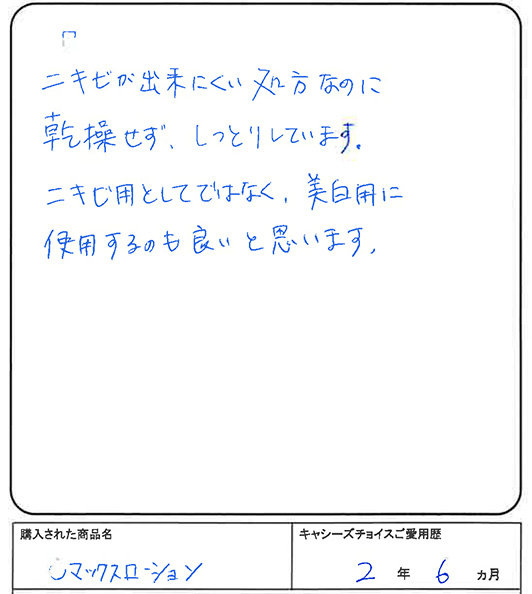 ニキビが出来にくい処方なのに
乾操せず、しっとりしています。
ニキビ用としてではなく、美白用に
使用するのも良いと思います。
購入された商品名
キャシーズチョイスご愛用歴
マックスローション
2年6ヵ月